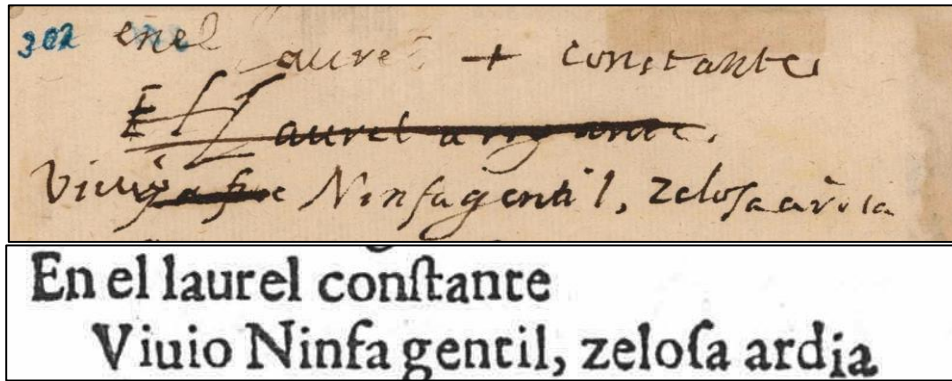 302 en el Laurel + constante
El Laurel
Viuio Ninfa gentil, zelosa ardia
En el laurel conſtante
Viuio Ninfa gentil, zeloſa ardia